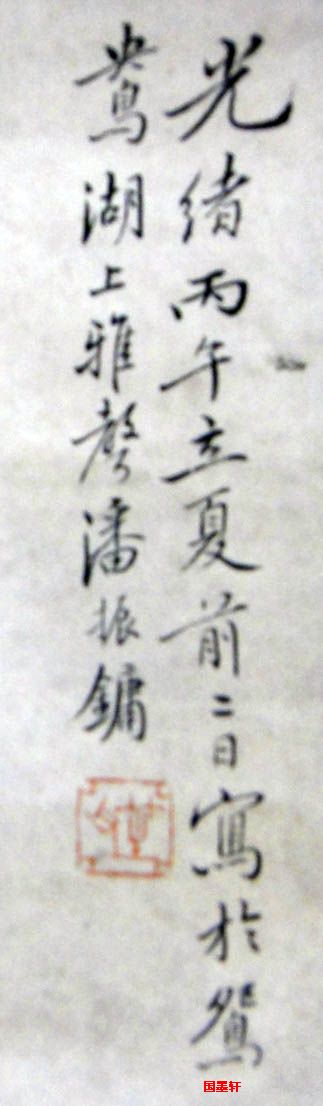 光緒丙午立夏前二日寫於鴛
鴦湖上雅聲潘振鏞
国墨轩